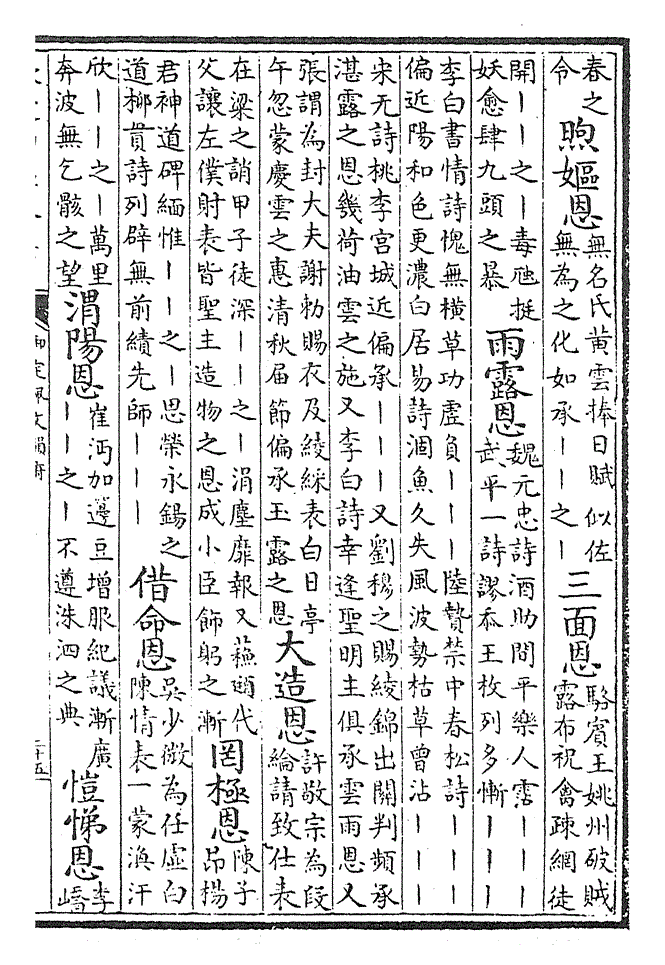 春之令煦嫗恩無名氏黃雲捧日賦 似佐無為之化如承——之—三面恩駱賓王姚州破賊露布祝禽疎網徒
開——之—毒虺挺妖愈肆九頭之暴雨露恩魏元忠詩酒助間平樂人霑———武平一詩謬忝王枚列多慚———
李白書情詩愧無橫草功虛負———陸贄禁中春松詩———偏近陽和色更濃白居易詩涸魚久失風波勢枯草曾沾———
宋无詩桃李宮城近偏承———又劉穆之賜綾錦出關判頻承湛露之恩幾荷油雲之施又李白詩幸逢聖明主俱承雲雨恩又
張謂為封大夫謝勅賜衣及綾綵表白日亭午忽蒙慶雲之惠清秋届節偏承玉露之恩大造恩許敬宗為段綸請致仕表
在梁之誚甲子徒深——之—涓塵靡報又蘇頲代父讓左僕射表皆聖主造物之恩成小臣飾躬之漸罔極恩陳子昂楊
君神道碑緬惟——之—思榮永錫之道柳貫詩列辟無前績先師———借命恩吳少微為任虛白陳情表一蒙渙汗
欣——之—萬里奔波無乞骸之望渭陽恩崔沔加籩豆增服紀議漸廣——之—不遵洙泗之典愷悌恩李嶠
御定佩文韻府